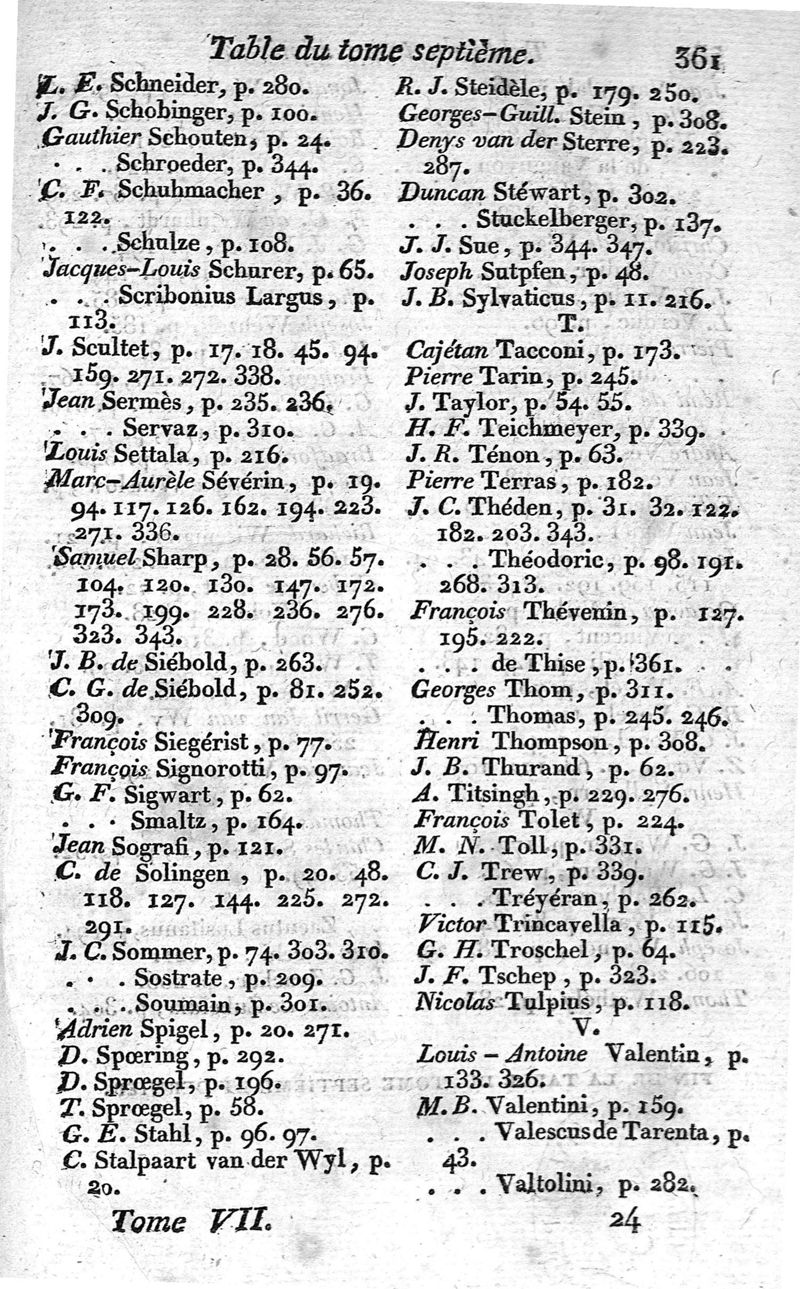 Table du tome septième. 361
L. E. Schneider, p. 280.
J. G. Schobinger, p. 100.
Gauthier Schouten, p. 24.
. . . Schroeder, p. 344.
C. F. Schuhmacher, p. 36.
122.
. . . Schulze, p. 108.
Jacques-Louis Schurer, p. 65.
. . . Scribonius Largus, p.
113.
J. Scultet, p. 17. 18. 45. 94.
159. 271. 272. 338.
Jean Sermès, p. 235. 236.
. . . Servaz, p. 310.
Louis Settala, p. 216.
Marc-Aurèle Sévérin, p. 19.
94. 117. 126. 162. 194. 223.
271. 336.
Samuel Sharp, p. 28. 56. 57.
104. 120. 130. 147. 172.
173. 199. 228. 236. 276.
323. 343.
J. B. de Siébold, p. 263.
C. G. de Siébold, p. 81. 252.
309.
François Siegérist, p. 77.
François Signorotti, p. 97.
G. F. Sigwart, p. 62.
. . . Smaltz, p. 164.
Jean Sografi, p. 121.
C. de Solingen, p. 20. 48.
118. 127. 144. 225. 272.
291.
J. C. Sommer, p. 74. 303. 310.
. . . Sostrate, p. 209.
. . . Soumain, p. 301.
Adrien Spigel, p. 20. 271.
D. Spœring, p. 292.
D. Sprœgel, p. 196.
T. Sprœgel, p. 58.
G. E. Stahl, p. 96. 97.
C. Stalpaart van der Wyl, p.
20.
R. J. Steidèle, p. 179. 250.
Georges-Guill. Stein, p. 308.
Denys van der Sterre, p. 223.
287.
Duncan Stéwart, p. 302.
. . . Stuckelberger, p. 137.
J. J. Sue, p. 344. 347.
Joseph Sutpfen, p. 48.
J. B. Sylvaticus, p. 11. 216.
T.
Cajétan Tacconi, p. 173.
Pierre Tarin, p. 245.
J. Taylor, p. 54. 55.
H. F. Teichmeyer, p. 339.
J. R. Ténon, p. 63.
Pierre Terras, p. 182.
J. C. Théden, p. 31. 32. 122.
182. 203. 343.
. . . Théodoric, p. 98. 191.
268. 313.
François Thévenin, p. 127.
195. 222.
. . . de Thise, p. 361.
Georges Thom, p. 311.
. . . Thomas, p. 245. 246.
Henri Thompson, p. 308.
J. B. Thurand, p. 62.
A. Titsingh, p. 229. 276.
François Tolet, p. 224.
M. N. Toll, p. 331.
C. J. Trew, p. 339.
. . . Tréyéran, p. 262.
Victor Trincavella, p. 115.
G. H. Troschel, p. 64.
J. F. Tschep, p. 323.
Nicolas Tulpius, p. 118.
V.
Louis-Antoine Valentin, p.
133. 326.
M. B. Valentini, p. 159.
. . . Valescus de Tarenta, p.
43.
. . . Valtolini, p. 282.
Tome VII. 24